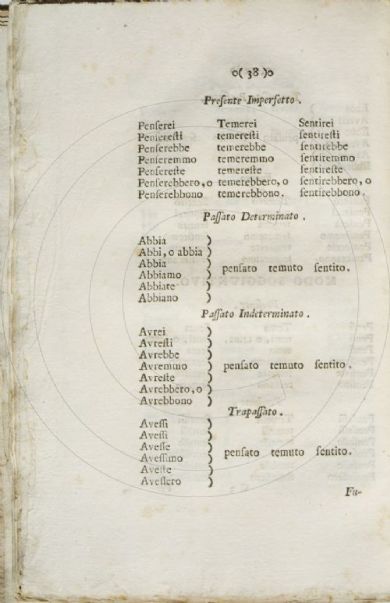 o( 38 )o
Presente Imperfetto.
Penserei Temerei Sentirei
Penseresti temeresti sentiresti
Penserebbe temerebbe sentirebbe
Penseremmo temeremmo sentiremmo
Pensereste temereste sentireste
Penserebbero, o temerebbero, o sentirebbero, o
Penserebbono temerebbono. sentirebbono.
Passato Determinato.
Abbia )
Abbi, o abbia )
Abbia )
Abbiamo ) pensato temuto sentito.
Abbiate )
Abbiano )
Passato Indeterminato.
Avrei )
Avresti )
Avrebbe )
Avremmo ) pensato temuto sentito.
Avreste )
Avrebbero, o )
Avrebbono )
Trapassato.
Avessi )
Avessi )
Avesse )
Avessimo ) pensato temuto sentito.
Aveste )
Avessero )
Fu-